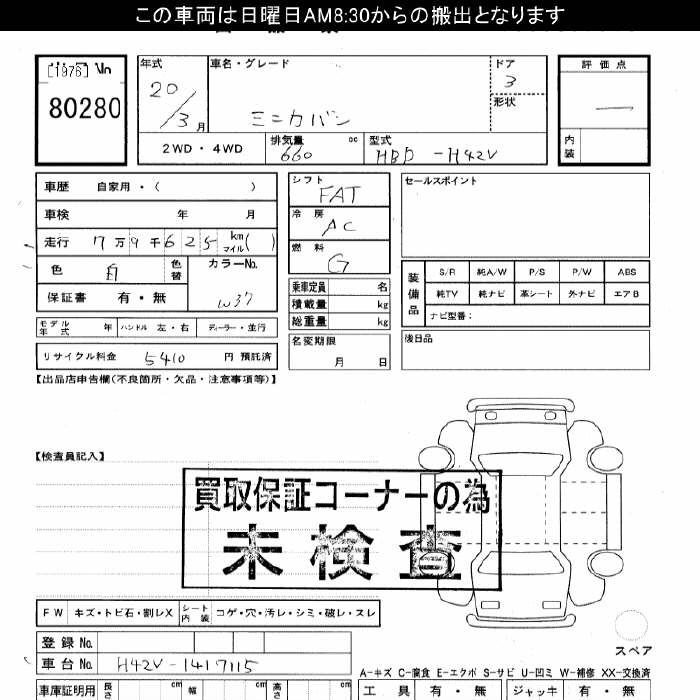 この車両は日曜日AM8:30からの搬出となります
[1976]
80280
年式
20/3 月
車名・グレード
ミニカバン
ドア
3
形状
評価点
—
内装
2WD・4WD
排気量 cc
660
型式
HBD-H42V
車歴 自家用・( )
車検 年 月
走行 7万9千625 km マイル( )
色 白 色替
カラーNo.
W37
保証書 有・無
モデル年式 年 ハンドル 左・右 ディーラー・並行
リサイクル料金 5410 円 預託済
シフト
FAT
冷房
AC
燃料
G
乗車定員 名
積載量 kg
総重量 kg
名変期限
月 日
セールスポイント
装備品
S/R 純A/W P/S P/W ABS
純TV 純ナビ 革シート 外ナビ エアB
ナビ型番:
後日品
【出品店申告欄(不良箇所・欠品・注意事項等)】
【検査員記入】
買取保証コーナーの為
未検査
FW キズ・トビ石・割レX シート内装 コゲ・穴・汚レ・シミ・破レ・スレ
登録No.
車台No. H42V-1417115
スペア
A-キズ C-腐食 E-エクボ S-サビ U-凹ミ W-補修 XX-交換済
車庫証明用 長さ cm 幅 cm 高さ cm
工具 有・無 ジャッキ 有・無